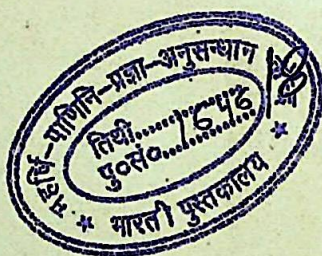 महर्षि-पाणिनि-प्रज्ञा-अनुसन्धान
तिथी..............
पु०सं०..1646......
भारती पुस्तकालय